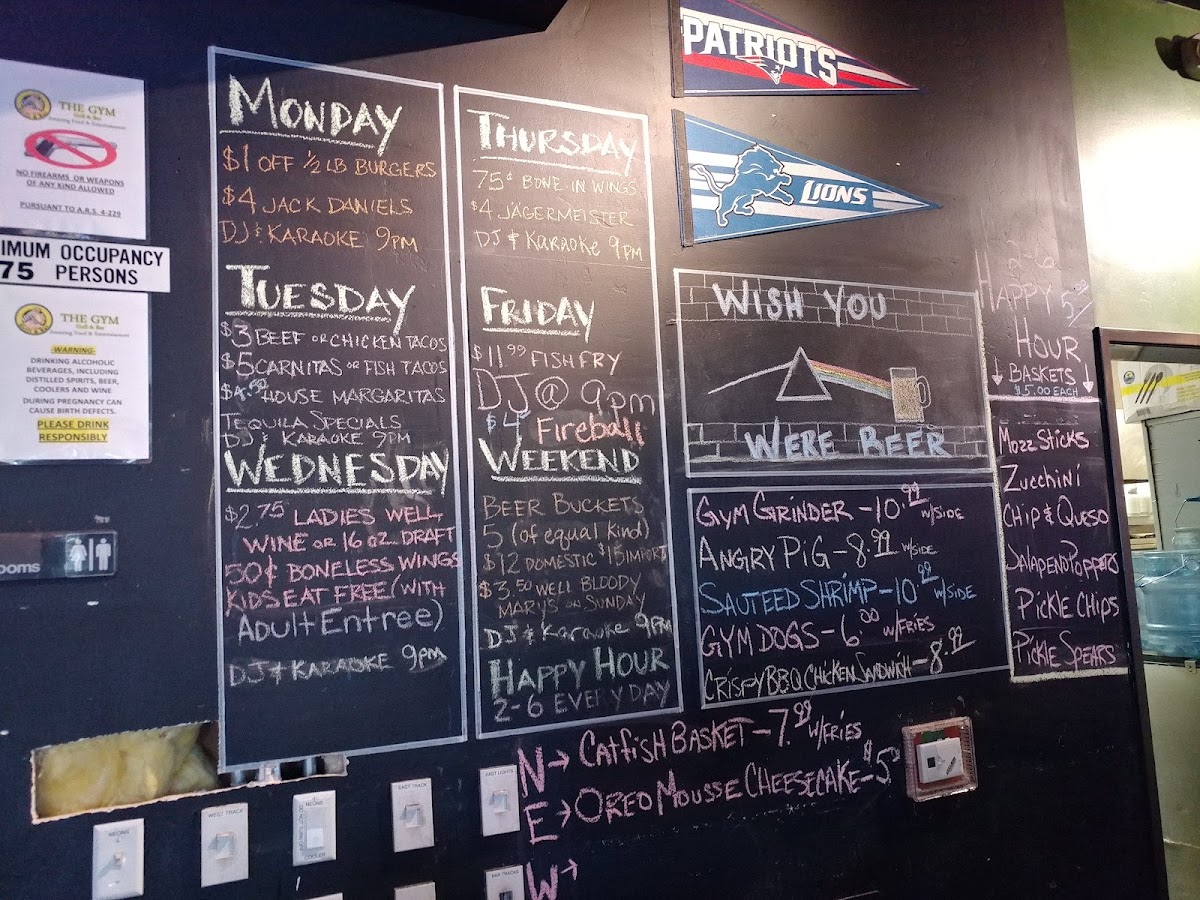 THE GYM
Grill & Bar
NO FIREARMS OR WEAPONS
OF ANY KIND ALLOWED
PURSUANT TO A.R.S. 4-229
IMUM OCCUPANCY
75 PERSONS
THE GYM
Grill & Bar
-WARNING-
DRINKING ALCOHOLIC
BEVERAGES, INCLUDING
DISTILLED SPIRITS, BEER,
COOLERS AND WINE
DURING PREGNANCY CAN
CAUSE BIRTH DEFECTS.
PLEASE DRINK
RESPONSIBLY
ooms
MONDAY
$1 OFF ½ LB BURGERS
$4 JACK DANIELS
DJ & KARAOKE 9PM
TUESDAY
$3 BEEF OR CHICKEN TACOS
$5 CARNITAS OR FISH TACOS
HOUSE MARGARITAS
TEQUILA SPECIALS
DJ & KARAOKE 9PM
WEDNESDAY
$2.75 LADIES WELL
WINE OR 16 OZ. DRAFT
50¢ BONELESS WINGS
KIDS EAT FREE (WITH
Adult Entree)
DJ & KARAOKE 9PM
THURSDAY
75¢ BONE-IN WINGS
$4 JÄGERMEISTER
DJ & KARAOKE 9PM
FRIDAY
$11.99 FISH FRY
DJ @ 9pm
$4 Fireball
WEEKEND
BEER BUCKETS
5 (of equal kind)
$12 DOMESTIC $15 IMPORT
$3.50 WELL BLOODY
MARYS ON SUNDAY
DJ & Karaoke 9PM
HAPPY HOUR
2-6 EVERY DAY
PATRIOTS
LIONS
WISH YOU
WERE BEER
GYM GRINDER - 10.99 W/SIDE
ANGRY PIG - 8.99 W/SIDE
SAUTEED SHRIMP - 10.99 W/SIDE
GYM DOGS - 6.00 W/FRIES
CRISPY BBQ CHICKEN SANDWICH - 8.99
2-6
HAPPY
HOUR
BASKETS
$5.00 EACH
MOZZ STICKS
ZUCCHINI
CHIP & QUESO
JALAPENO POPPERS
PICKLE CHIPS
PICKLE SPEARS
N → CATFISH BASKET - 7.99 W/FRIES
E → OREO MOUSSE CHEESECAKE - $5
W →
NEONS
WEST TRACK
NEONS
COOLER
EAST TRACK
EAST LIGHTS
BAR TRACKS